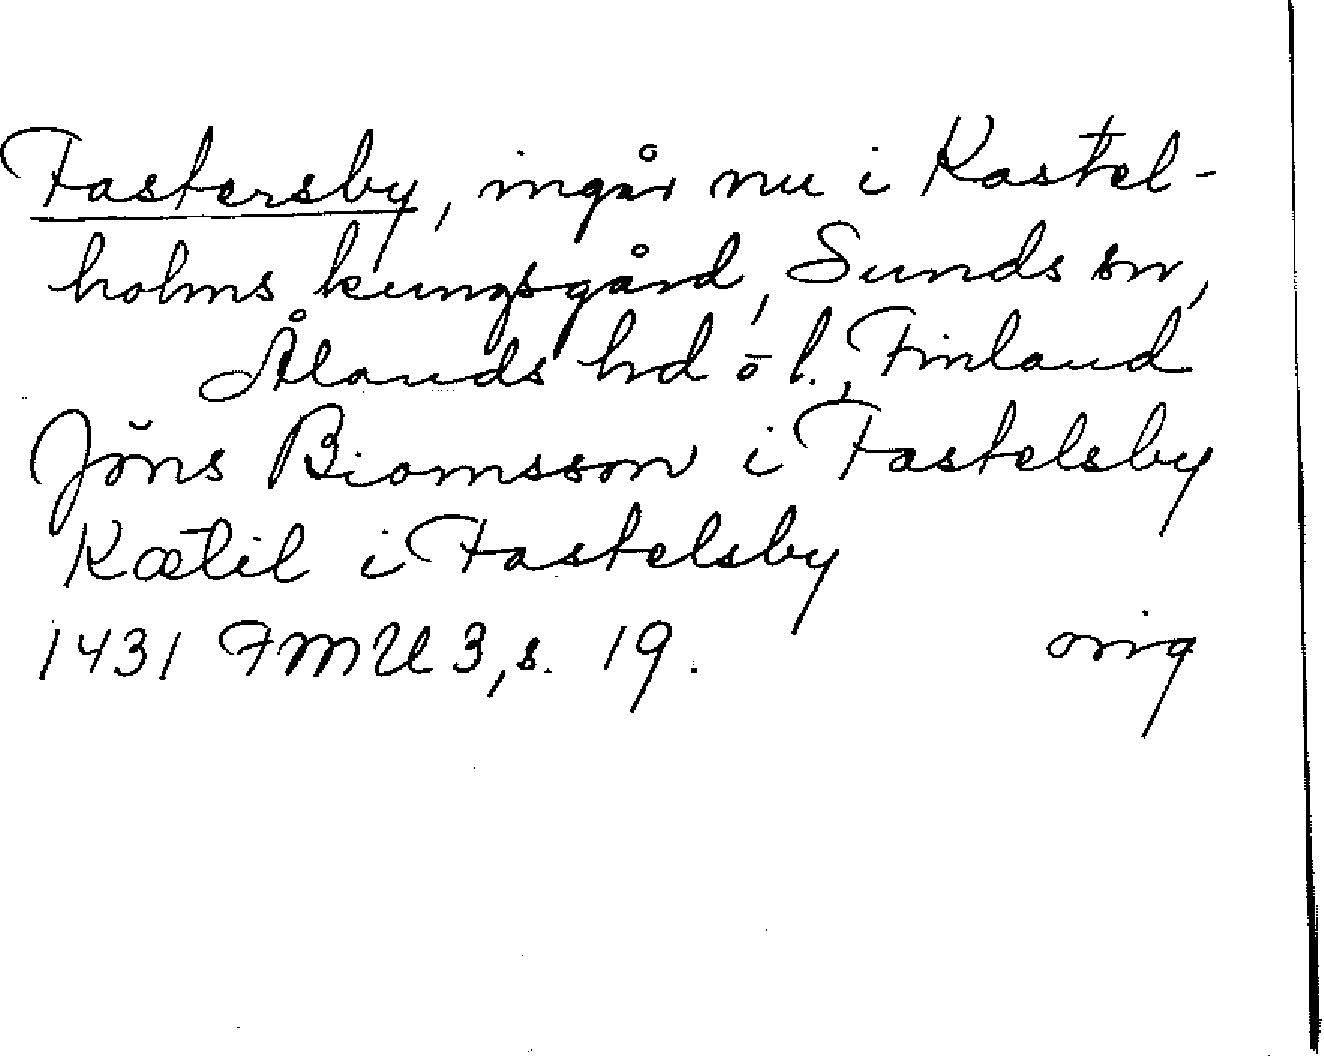 Fastersby, ingår nu i Kastel-
holms kungsgård, Sunds sn,
Ålands hd o l., Finland
Jöns Biomsson i Fastelsby
Kætil i Fastelsby
1431 FMU 3, s. 19. orig